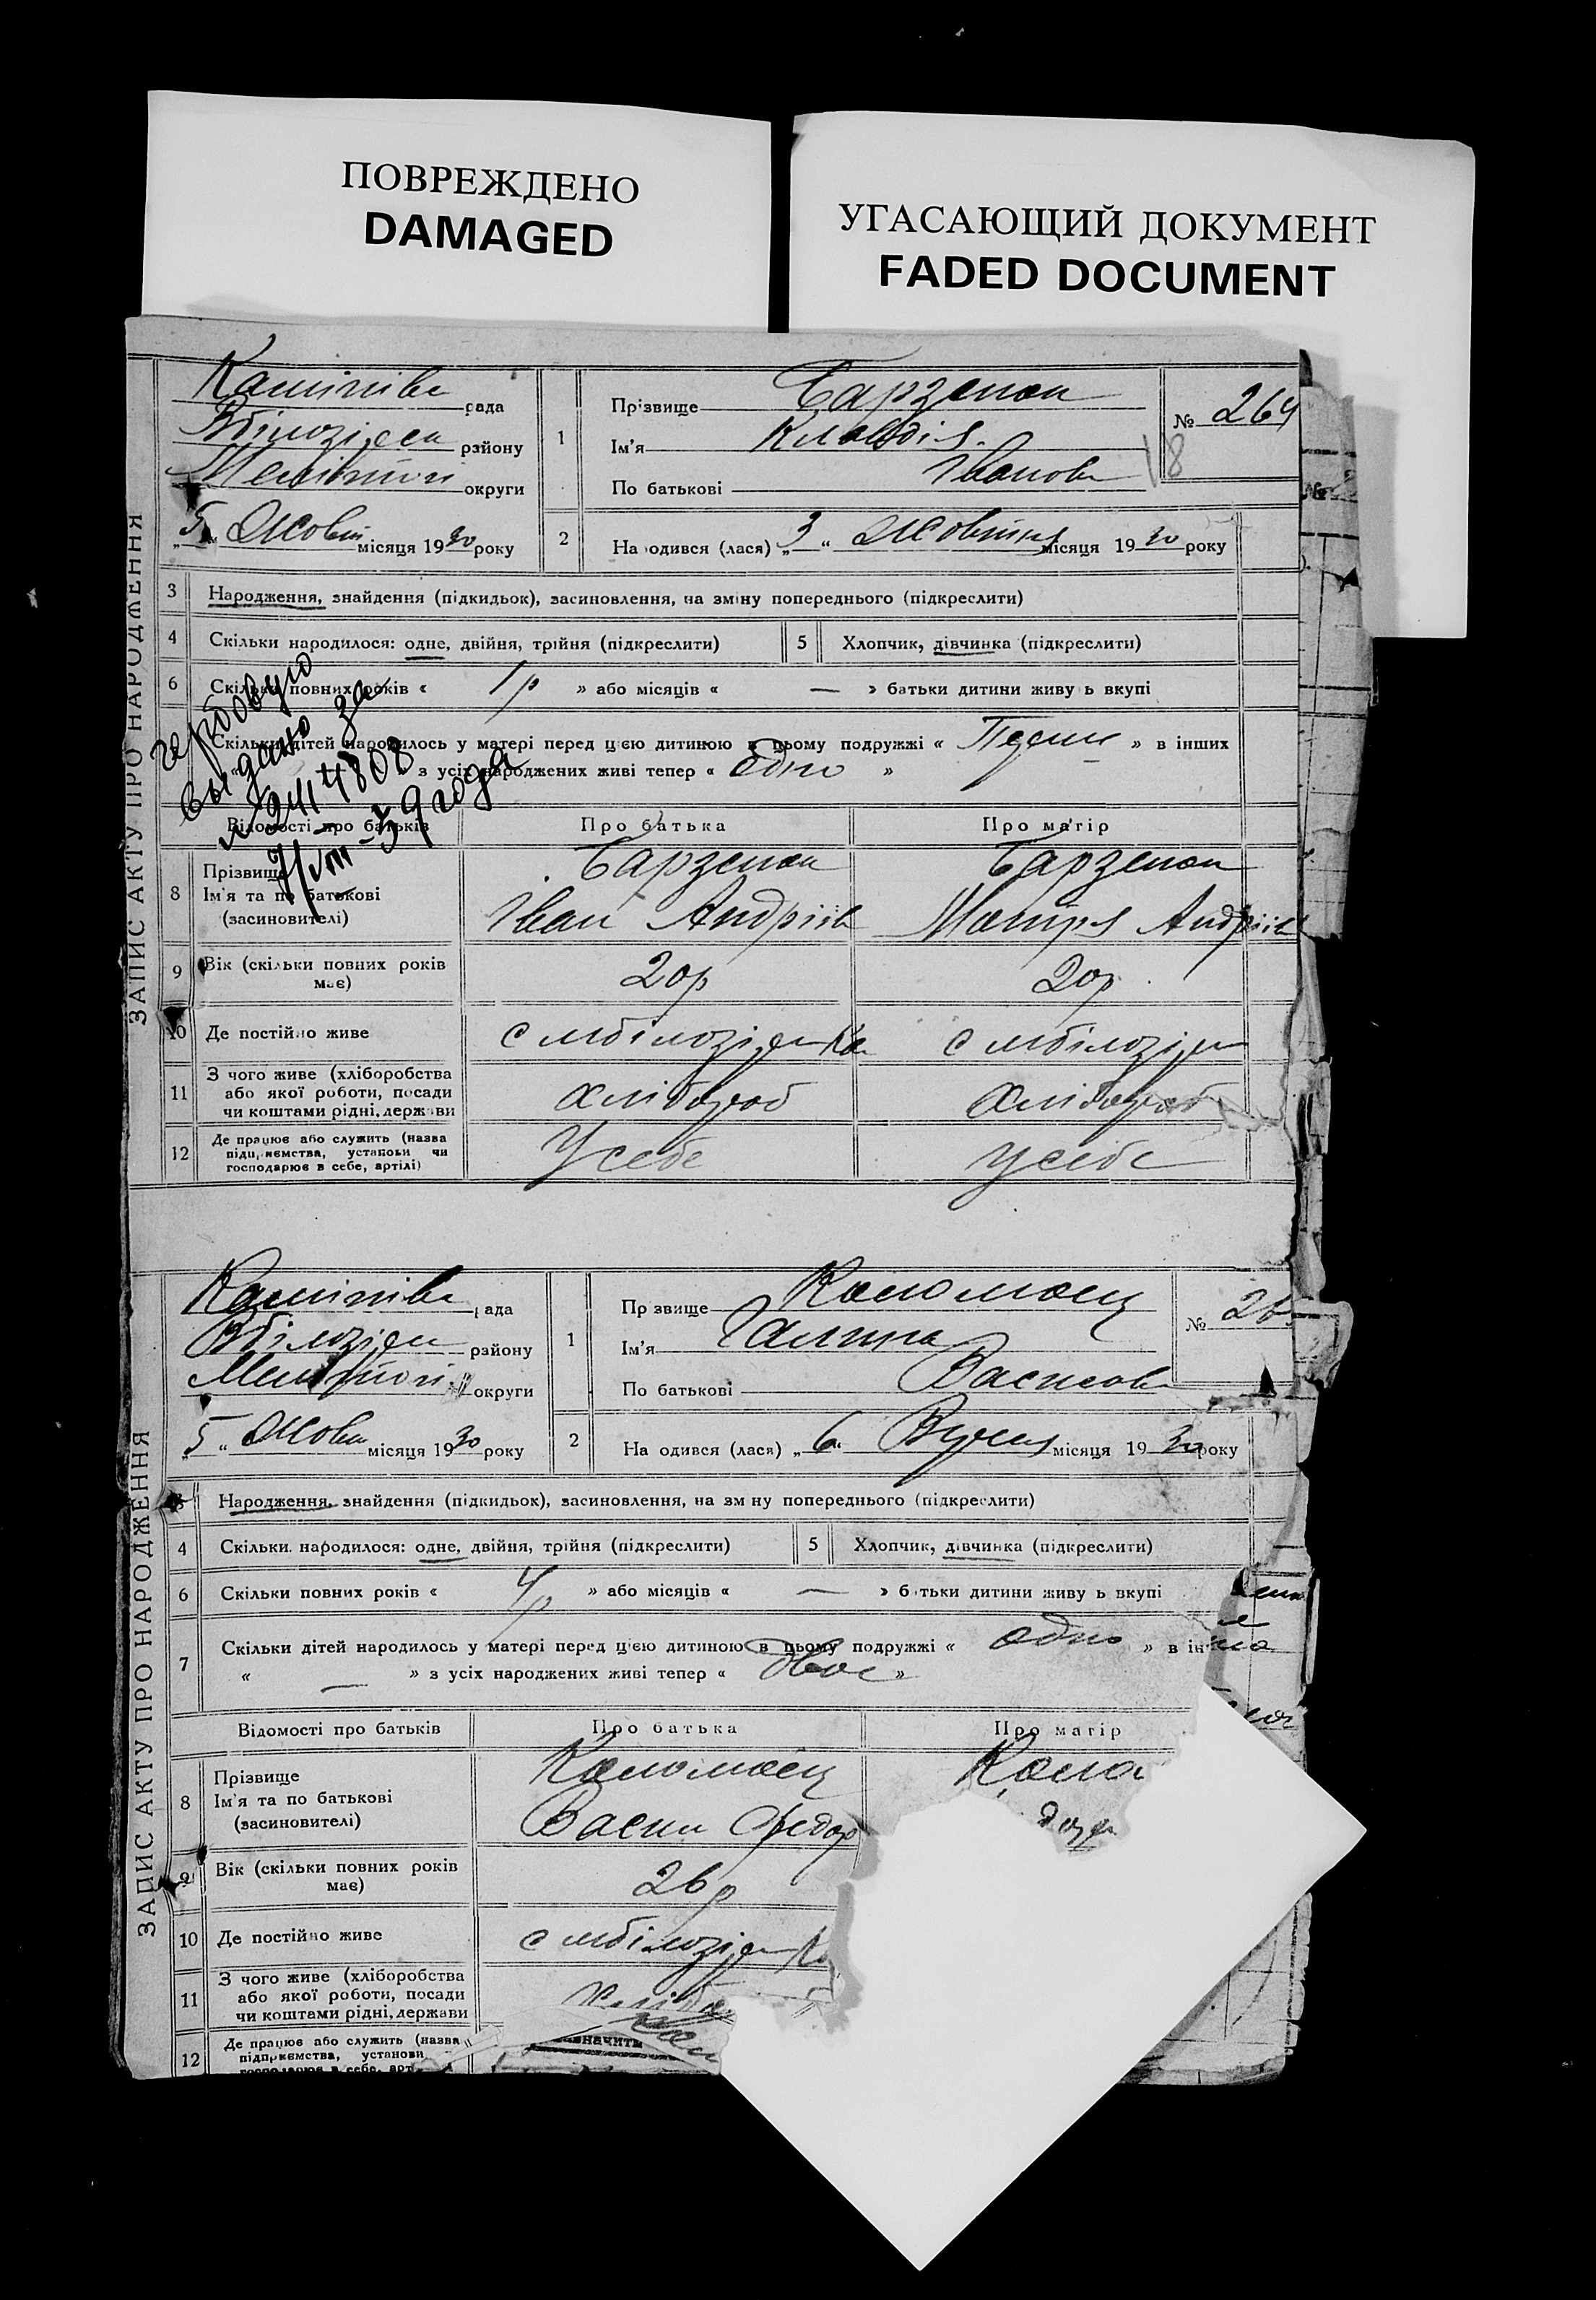 ПОВРЕЖДЕНО
DAMAGED
УГАСАЮЩИЙ ДОКУМЕНТ
FADED DOCUMENT
ЗАПИС АКТУ ПРО НАРОДЖЕННЯ
рада
району
округи
„5“ Жовтн місяця 1930 року
1
Прізвище
Ім'я Клавдія
По батькові Іванов
№ 264
18
2
На одився (лася) „3“ Жовтня місяця 1930 року
3 Народження, знайдення (підкидьок), засиновлення, на зміну попереднього (підкреслити)
4 Скільки народилося: одне, двійня, трійня (підкреслити)
5 Хлопчик, дівчинка (підкреслити)
6 Скільки повних років « 1р » або місяців « — » батьки дитини живу ь вкупі
Скільки дітей народилось у матері перед цією дитиною в цьому подружжі « » в інших
« » з усіх народжених живі тепер « одно »
гербовую
выдано за
№ 2414808
7/VIII-39 года
Відомості про батьків Про батька Про матір
8 Прізвище
Ім'я та по батькові Іван Андріів Андріів
(засиновителі)
9 Вік (скільки повних років має) 20р 20р.
10 Де постійно живе
11 З чого живе (хліборобства або якої роботи, посади чи коштами рідні, держави хлібороб хлібороб
12 Де працює або служить (назва підприємства, установи чи господарює в себе, артілі) У себе У себе
ЗАПИС АКТУ ПРО НАРОДЖЕННЯ
рада
району
округи
„5“ Жовтн місяця 1930 року
1
Пр звище Коломоец
Ім'я Галина
По батькові Васильов
№ 26
2
На одився (лася) „6“ місяця 1930 року
3 Народження, знайдення (підкидьок), засиновлення, на зм ну попереднього (підкреслити)
4 Скільки народилося: одне, двійня, трійня (підкреслити)
5 Хлопчик, дівчинка (підкреслити)
6 Скільки повних років « 4р » або місяців « — » б тьки дитини живу ь вкупі
7 Скільки дітей народилось у матері перед цією дитиною в цьому подружжі « одно » в ін
« — » з усіх народжених живі тепер « двое »
Відомості про батьків Про батька Про матір
8 Прізвище Коломоец Коло
Ім'я та по батькові Васил Федор
(засиновителі)
9 Вік (скільки повних років має) 26р
10 Де постійно живе
11 З чого живе (хліборобства або якої роботи, посади чи коштами рідні, держави хлібо
12 Де працює або служить (назва підприємства, установи
господарює в себе, арт